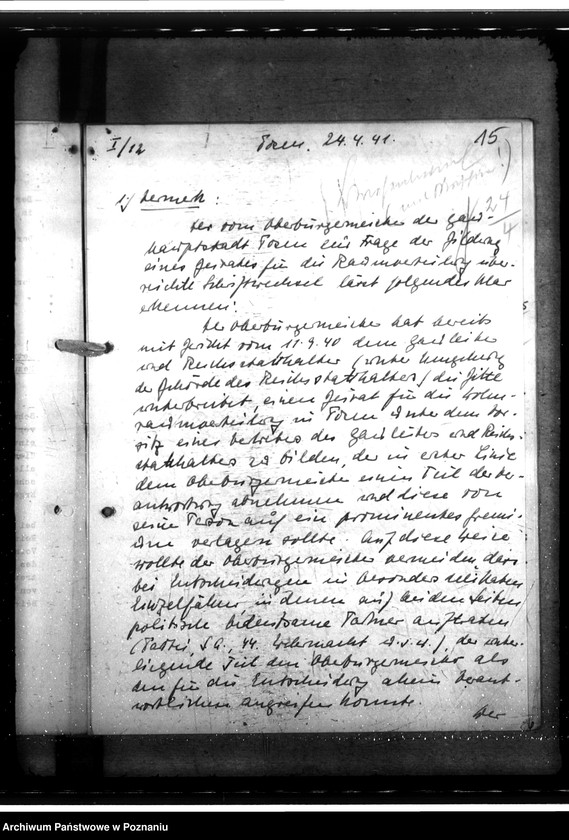 I/12 Posen. 24.4.41. 15
1) Vermerk:
Der vom Oberbürgermeister der Gau-
hauptstadt Posen zur Frage der Bildung
eines Beirates für die Raumverteilung über-
reichte Schriftwechsel lässt folgendes klar
erkennen:
Der Oberbürgermeister hat bereits
mit Bericht vom 11.9.40 dem Gauleiter
und Reichsstatthalter (unter Umgehung
der Behörde des Reichsstatthalters) die Bitte
unterbreitet, einen Beirat für die Wohn-
raumverteilung in Posen unter dem Vor-
sitz eines Vertreters des Gauleiters und Reichs-
statthalters zu bilden, der in erster Linie
dem Oberbürgermeister einen Teil der Ver-
antwortung abnehmen und diese von
seiner Person auf ein prominentes Gremi-
um verlagern sollte. Auf diese Weise
wollte der Oberbürgermeister vermeiden, dass
bei Entscheidungen in besonders delikaten
Einzelfällen, in denen auf beiden Seiten
politisch bedeutsame Partner auftraten
(Partei, SA., SS. Wehrmacht u.s.w.), der unter-
liegende Teil den Oberbürgermeister als
den für die Entscheidung allein verant-
wortlichen angreifen könnte.
Der
24/4
Archiwum Państwowe w Poznaniu